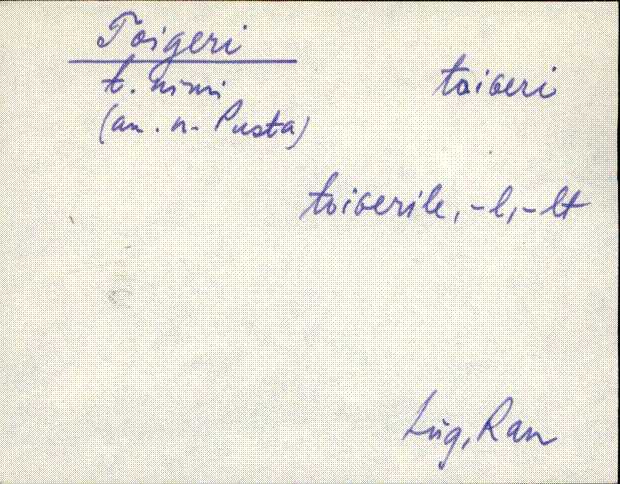 Toigeri
t. nimi
(am. n. Pusta)
toiɢeri
toiɢerile, -l, -lt
Lüg, Ran